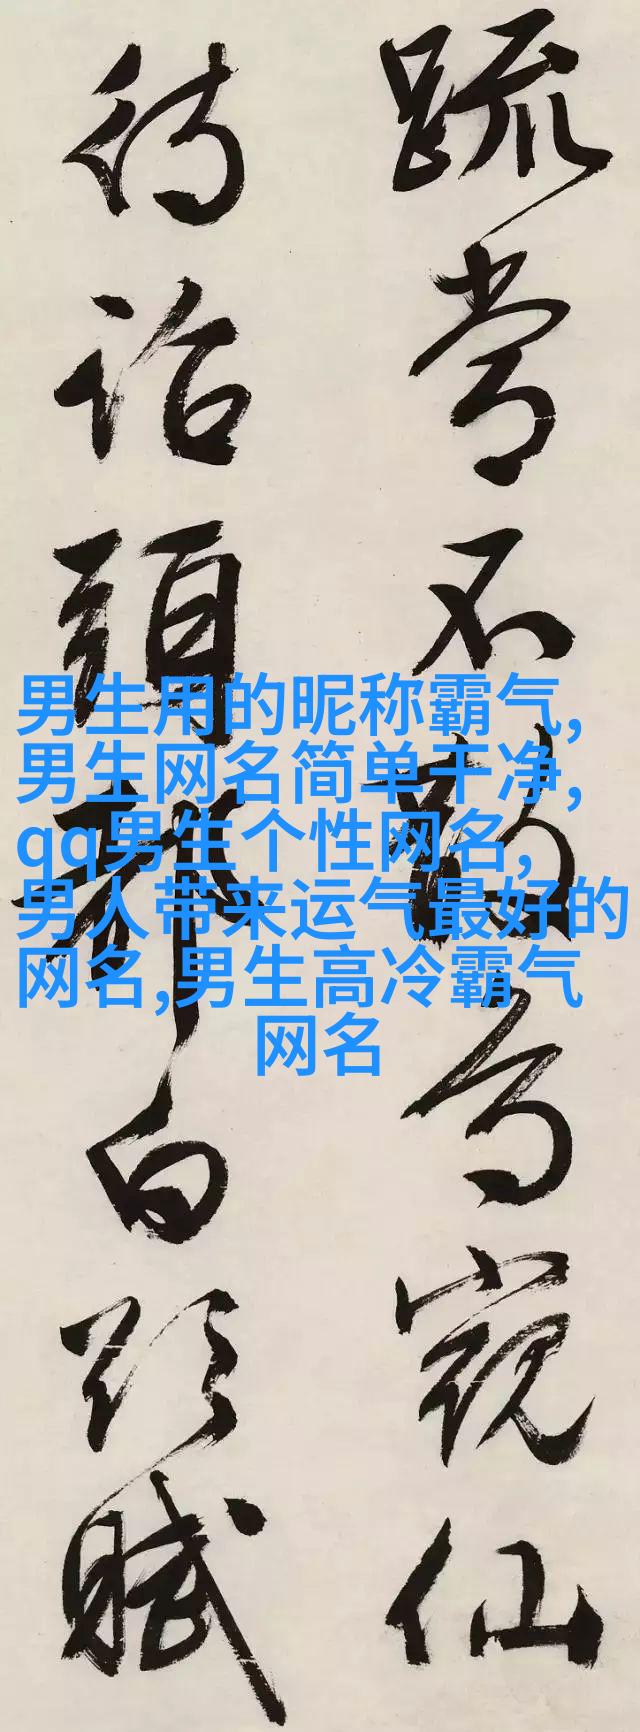 常不
仙
待詔頭
白
賦
男生用的昵称霸气,
男生网名简单干净,
qq男生个性网名,
男人带来运气最好的
网名,男生高冷霸气
网名